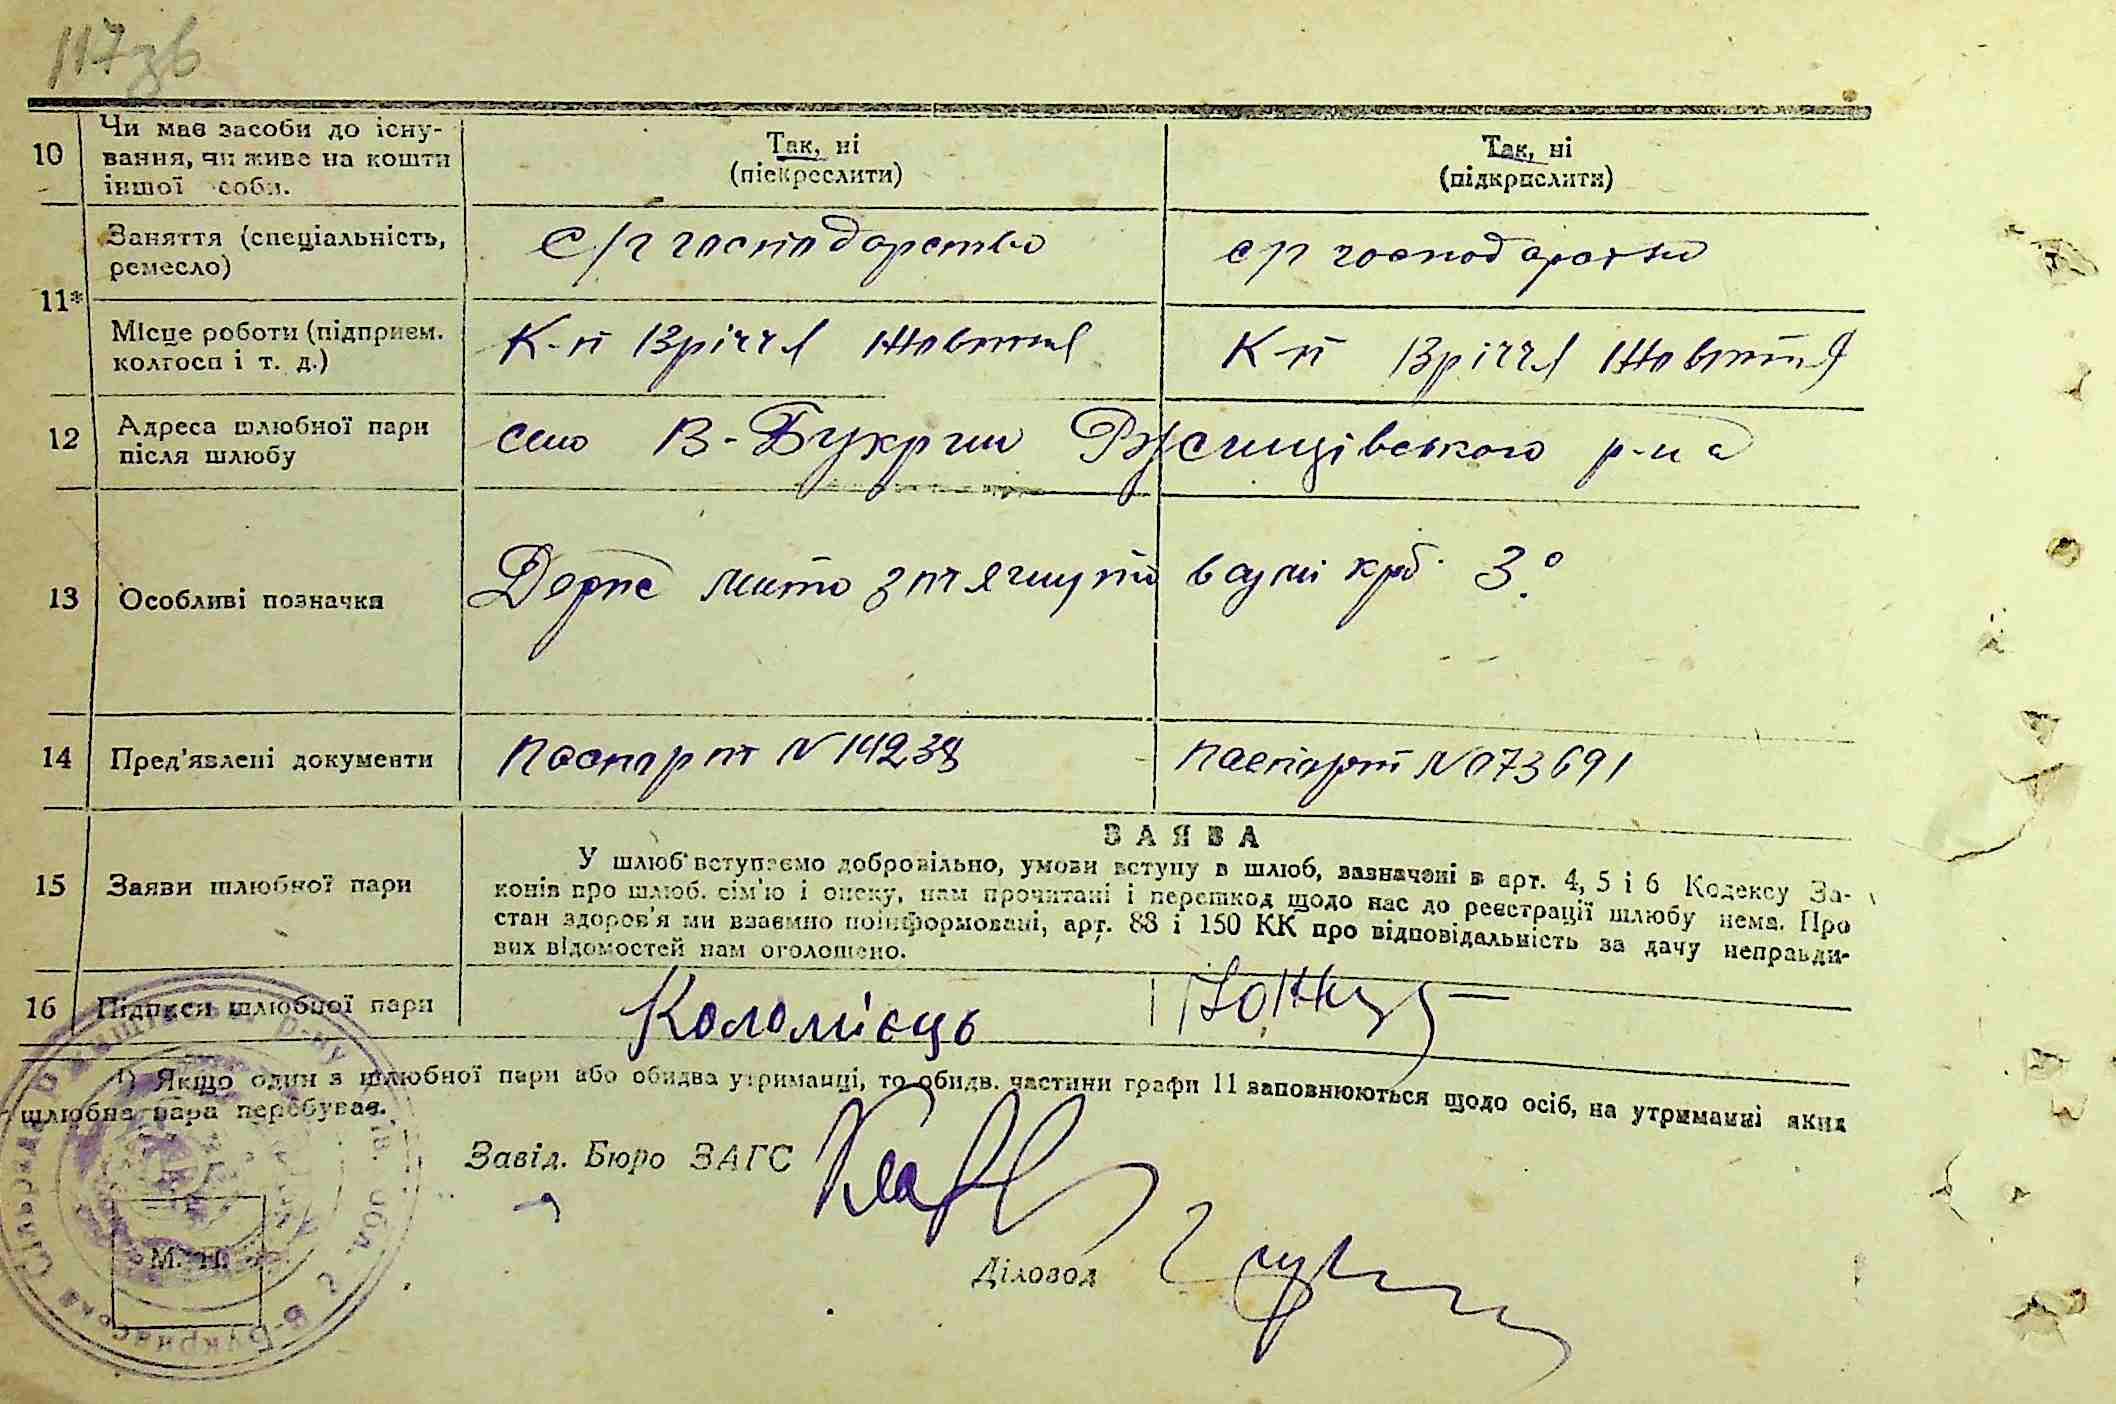 117зв
10 Чи має засоби до існу-
вання, чи живе на кошти
іншої особи.
Так, ні
(підкреслити)
Так, ні
(підкреслити)
11*
Заняття (спеціальність,
ремесло)
с/г господарство
с/г господарство
Місце роботи (підприєм.
колгосп і т. д.)
К-п Вріччя Жовтня
К-п Вріччя Жовтня
12 Адреса шлюбної пари
після шлюбу
село В-Букрин Ржищівського р-на
13 Особливі позначки
Держ мито зтягнуто в сумі крб. 3.
14 Пред'явлені документи
Паспорт N 14238
паспорт N 073691
ЗАЯВА
15 Заяви шлюбної пари
У шлюб вступаємо добровільно, умови вступу в шлюб, зазначені в арт. 4, 5 і 6 Кодексу За-
конів про шлюб. сім'ю і опеку, нам прочитані і перешкод щодо нас до реєстрації шлюбу нема. Про
стан здоров'я ми взаємно поінформовані, арт. 88 і 150 КК про відповідальність за дачу неправди-
вих відомостей нам оголошено.
16 Підписи шлюбної пари
Коломієць
¹) Якщо один з шлюбної пари або обидва утриманці, то обидв. частини графи 11 заповнюються щодо осіб, на утриманні яких
шлюбна пара перебуває.
Завід. Бюро ЗАГС
Діловод
М. П.